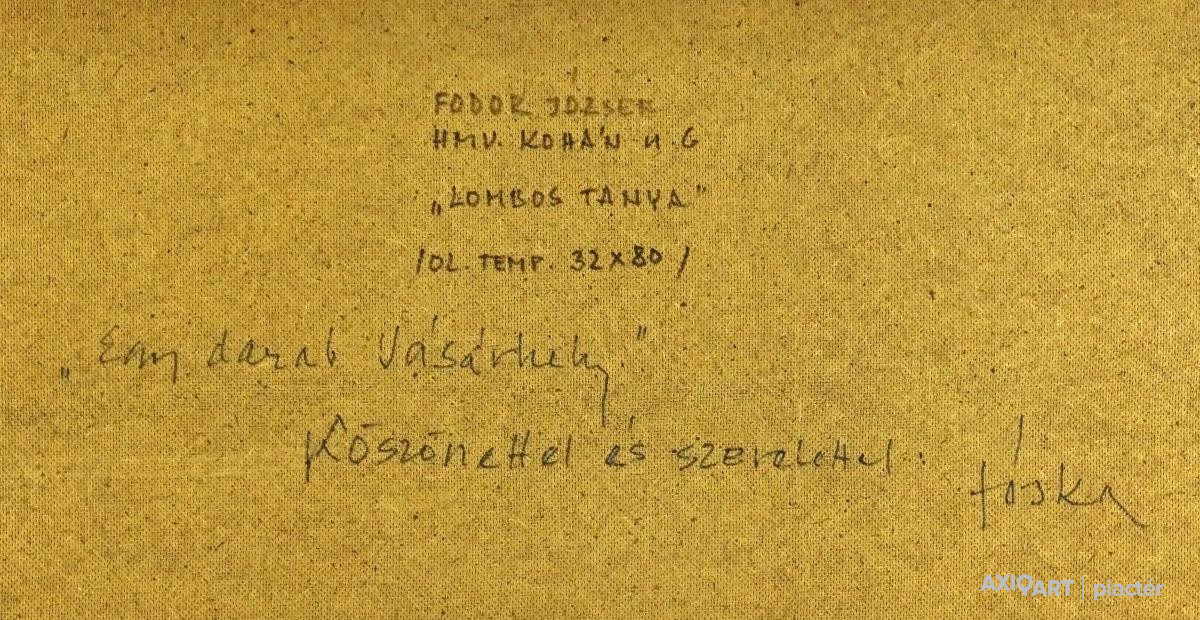 FODOR JÓZSEF
HMV. KOHÁN U. 6
„LOMBOS TANYA"
/OL. TEMP. 32X80/
„Egy darab Vásárhely."
Köszönettel és szeretettel.
Jóska
AXIOART | piactér